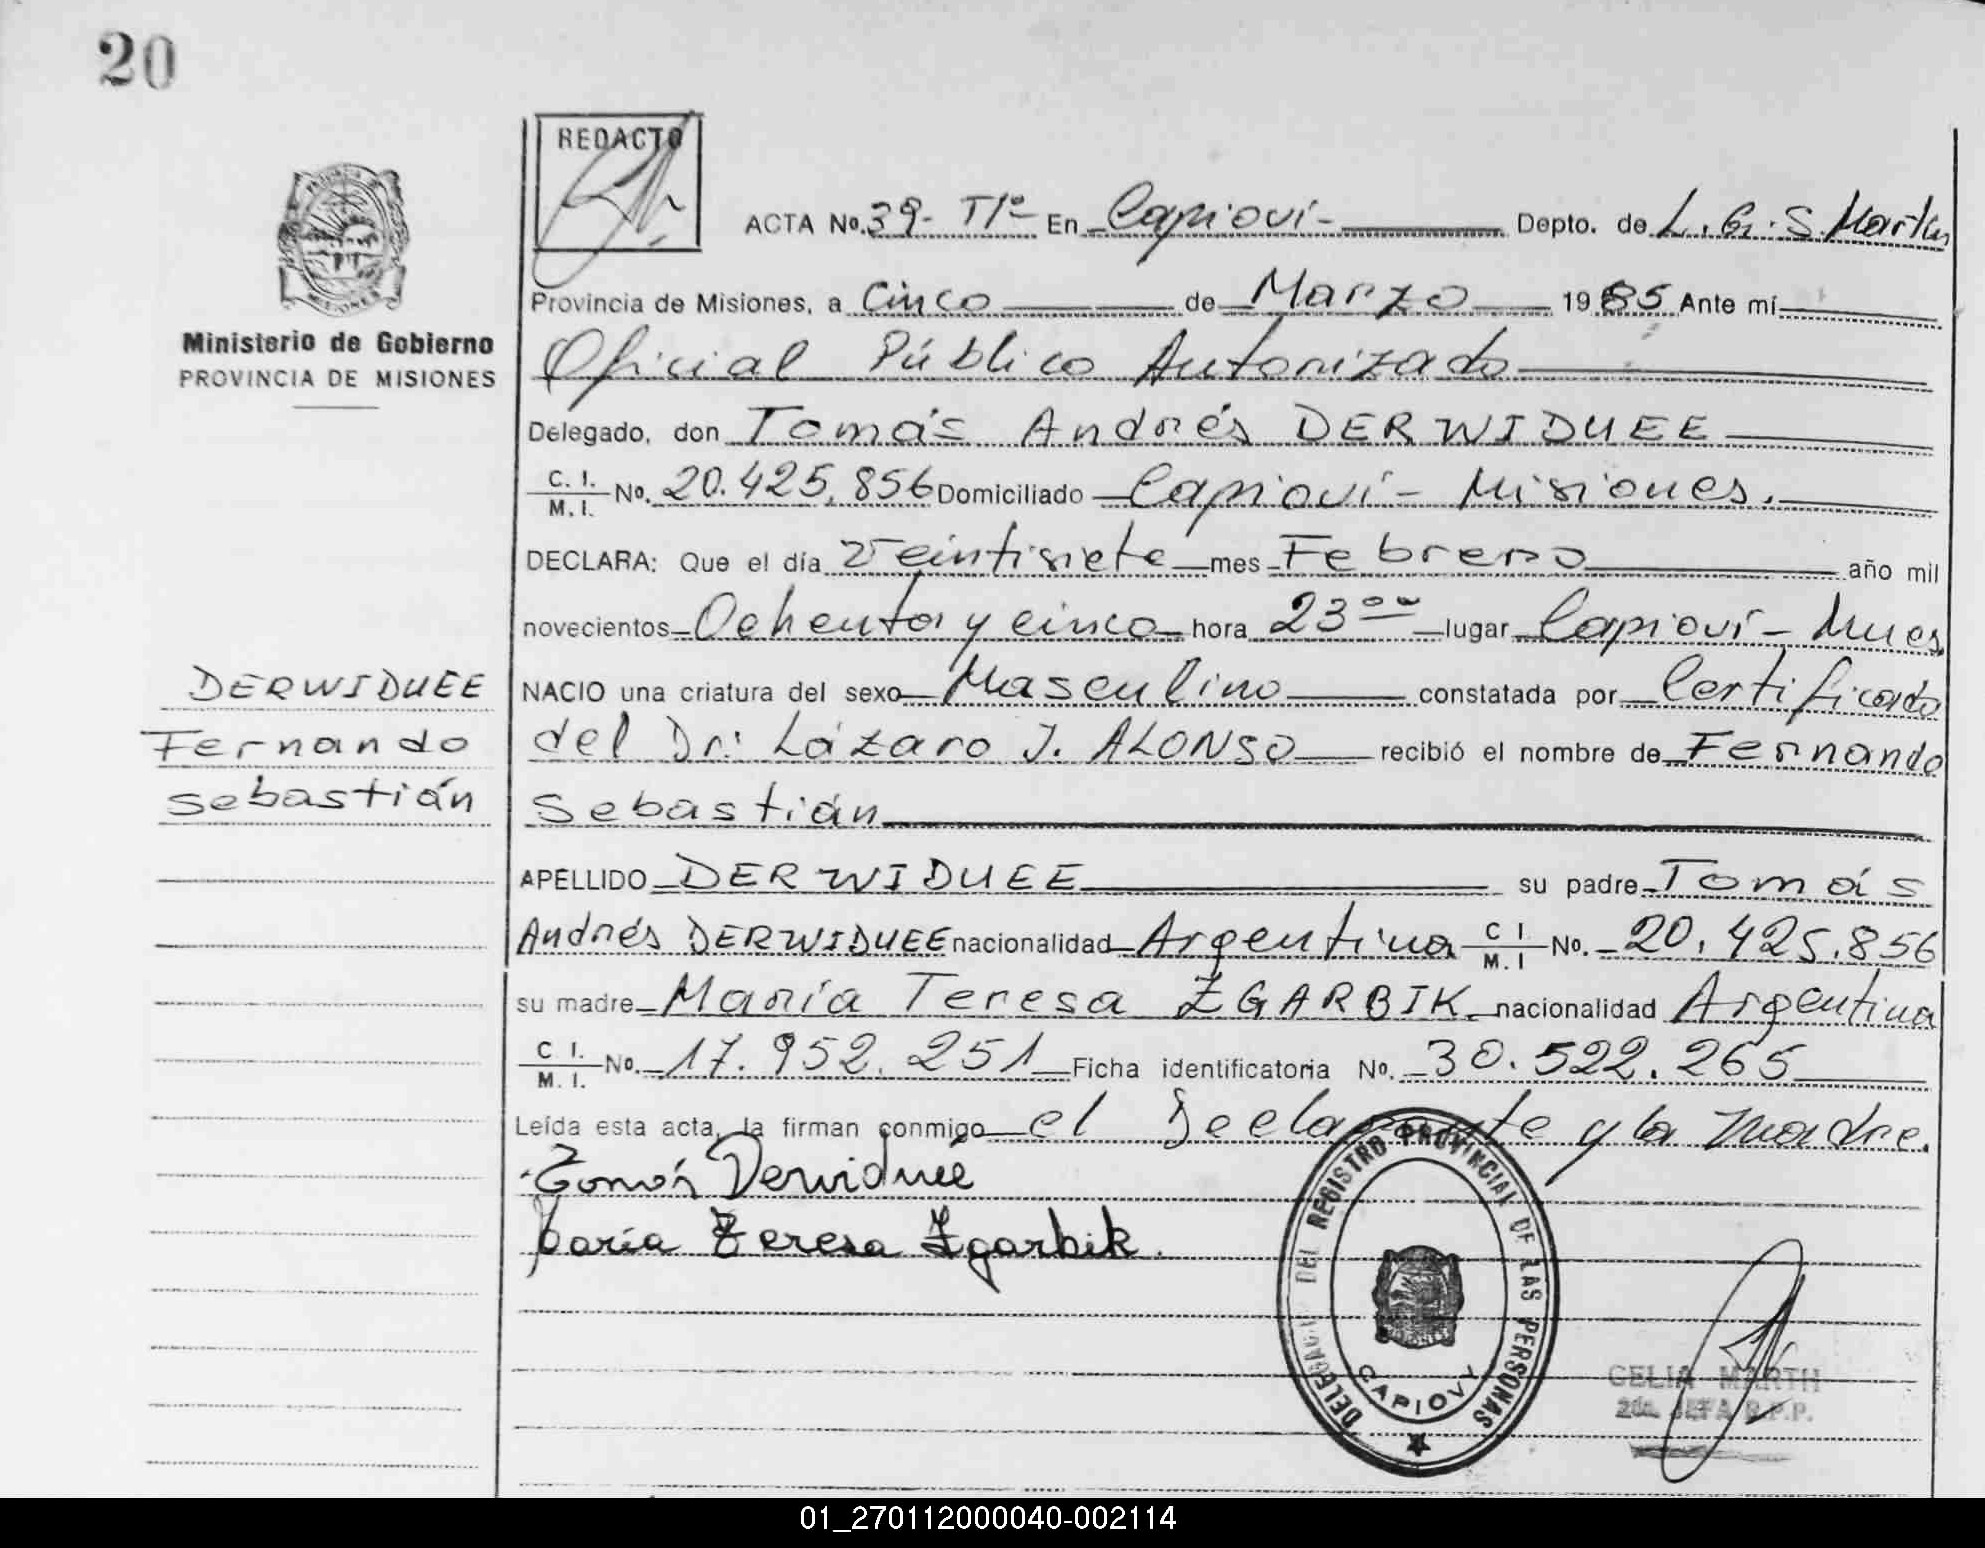 20
REDACTO
ACTA Nº. 39- Tº1º En Capioví- Depto. de L. G. S. Martín
Provincia de Misiones, a Cinco de Marzo 1985 Ante mí
Ministerio de Gobierno
PROVINCIA DE MISIONES
Oficial Público Autorizado
Delegado, don Tomás Andrés DERWIDUEE
C. I. / M. I. Nº. 20.425.856 Domiciliado Capioví- Misiones.
DECLARA: Que el día Veintisiete mes Febrero año mil
novecientos Ochenta y cinco hora 23ºº lugar Capioví- Mnes.
NACIO una criatura del sexo Masculino constatada por Certificado
del Dr: Lázaro J. ALONSO recibió el nombre de Fernando
Sebastián
DERWIDUEE
Fernando
Sebastián
APELLIDO DERWIDUEE su padre Tomás
Andrés DERWIDUEE nacionalidad Argentina C I / M. I Nº. 20.425.856
su madre María Teresa ZGARBIK nacionalidad Argentina
C I. / M. I. Nº. 17.952.251 Ficha identificatoria Nº. 30.522.265
Leída esta acta, la firman conmigo el Declarante y la Madre.
Tomás Derwiduee
María Teresa Zgarbik.
DELEGACION DEL REGISTRO PROVINCIAL DE LAS PERSONAS
CAPIOVY
CELIA MARTH
2da. JEFA R.P.P.
01_270112000040-002114